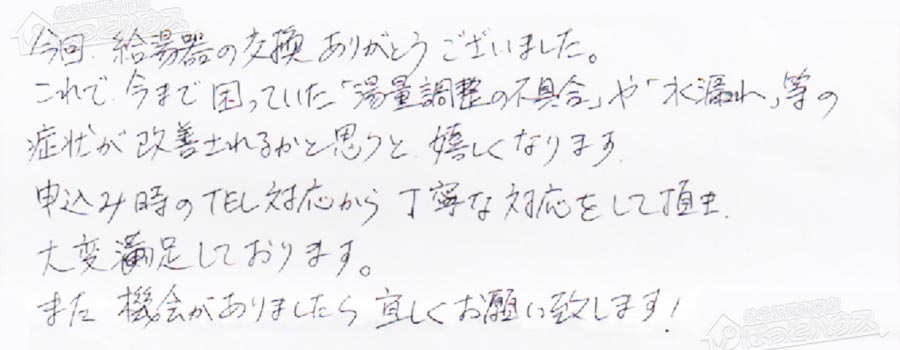 今回、給湯器の交換ありがとうございました。
これで、今まで困っていた「湯量調整の不具合」や「水漏れ」等の
症状が改善されるかと思うと、嬉しくなります。
申込み時のTEL対応から丁寧な対応をして頂き、
大変満足しております。
また機会がありましたら宜しくお願い致します！
ほっとハウス
ほっとハウス